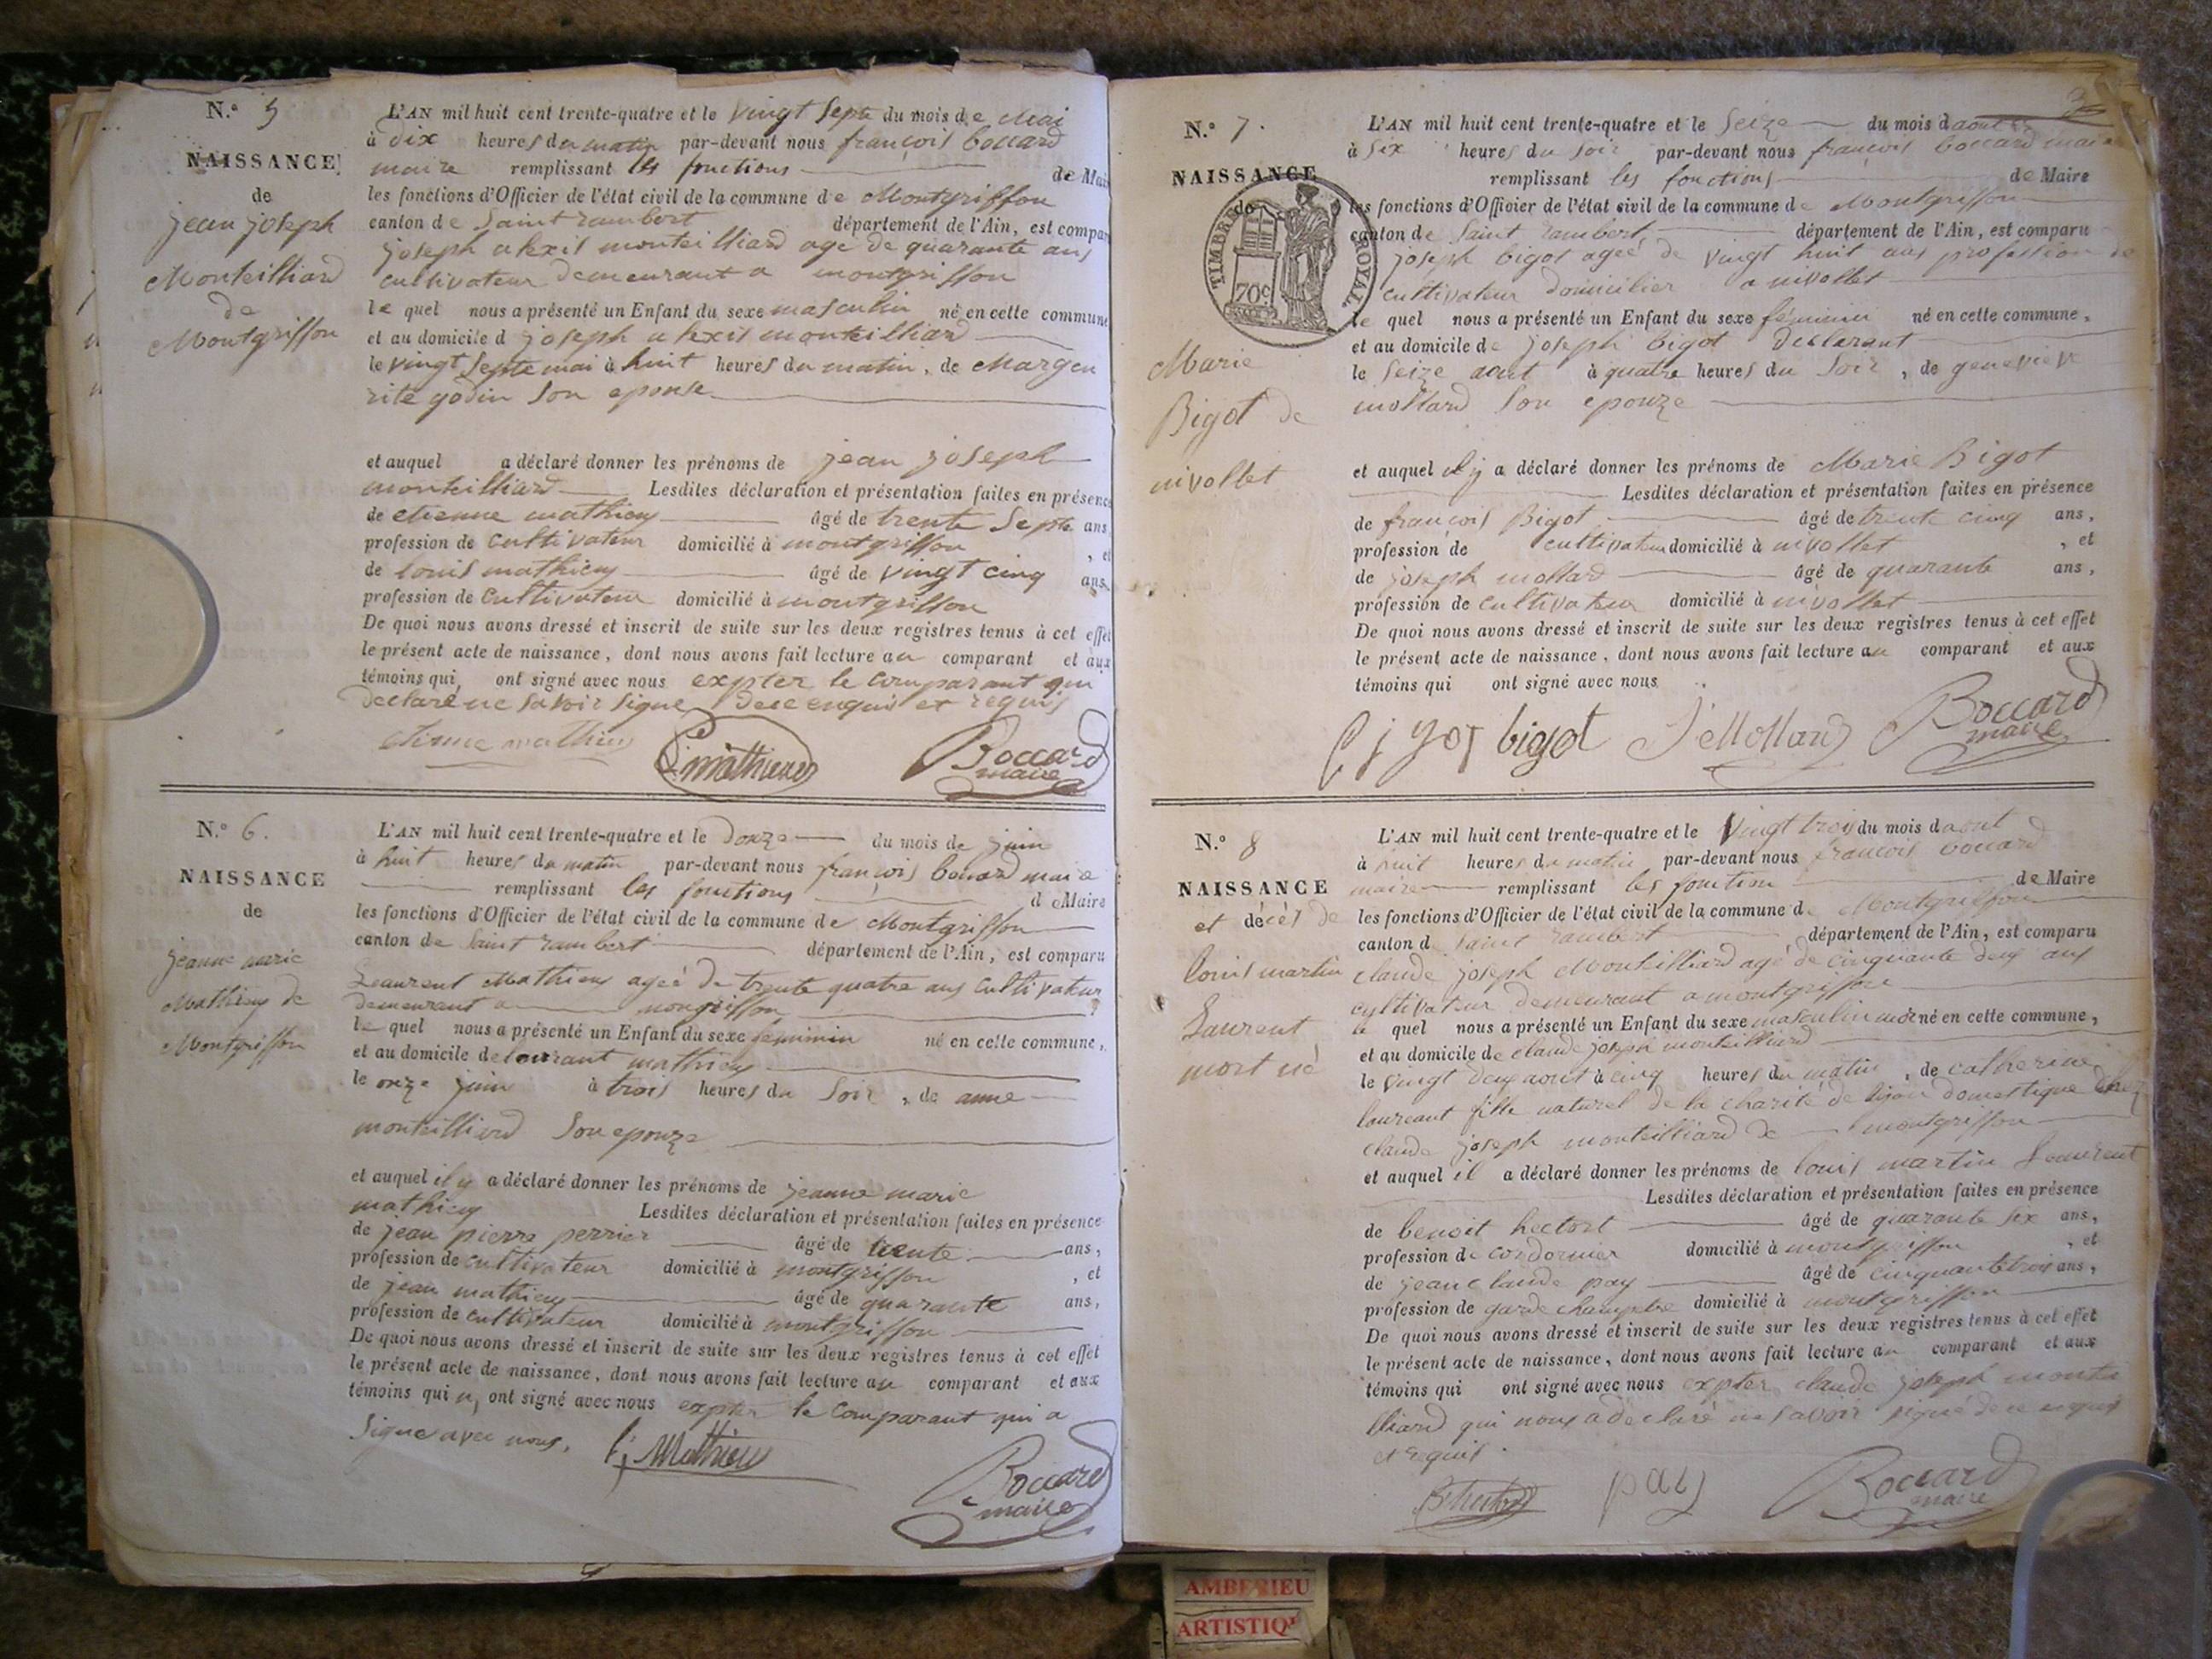 N.° 5
NAISSANCE
de
jean joseph
Monteilliard
de
Montgriffon
L'AN mil huit cent trente-quatre et le vingt septe du mois de Mai
à dix heures du matin par-devant nous françois boccard
maire remplissant les fonctions de Mai
les fonctions d'Officier de l'état civil de la commune de Montgriffon
canton de Saint rambert département de l'Ain, est compar
joseph alexis monteilliard age de quarante ans
cultivateur demeurant a montgriffon
le quel nous a présenté un Enfant du sexe masculin né en cette commune
et au domicile d joseph alexis monteilliard
le vingt septe mai à huit heures du matin, de Margeu
rite godin son epouse
et auquel a déclaré donner les prénoms de jean joseph
monteilliard Lesdites déclaration et présentation faites en présence
de etienne mathieu âgé de trente septe ans
profession de cultivateur domicilié à montgriffon , et
de louis mathieu âgé de vingt cinq ans,
profession de cultivateur domicilié à montgriffon
De quoi nous avons dressé et inscrit de suite sur les deux registres tenus à cet effet
le présent acte de naissance, dont nous avons fait lecture au comparant et aux
témoins qui ont signé avec nous expter le comparant qui
declaré ne savoir signe de ce enquis et requis
etienne mathieu mathieu Boccard
maire
N.° 6.
NAISSANCE
de
jeanne marie
Mathieu de
Montgriffon
L'AN mil huit cent trente-quatre et le douze du mois de juin
à huit heures du matin par-devant nous françois boccard maire
remplissant les fonctions de Maire
les fonctions d'Officier de l'état civil de la commune de Montgriffon
canton de Saint rambert département de l'Ain, est comparu
Leaurent Mathieu ageé de trente quatre ans cultivateur
demeurant a mongriffon
le quel nous a présenté un Enfant du sexe feminin né en cette commune,
et au domicile de laurant mathieu
le onze juin à trois heures du soir, de anne
monteilliard son epouze
et auquel il y a déclaré donner les prénoms de jeanne marie
mathieu Lesdites déclaration et présentation faites en présence
de jean pierre perrier âgé de trente ans,
profession de cultivateur domicilié à montgriffon , et
de jean mathieu âgé de quarante ans,
profession de cultivateur domicilié à montgriffon
De quoi nous avons dressé et inscrit de suite sur les deux registres tenus à cet effet
le présent acte de naissance, dont nous avons fait lecture au comparant et aux
témoins qui n, ont signé avec nous expter le comparant qui a
signe avec nous, Mathieu
Boccard
maire
N.° 7.
NAISSANCE
de
TIMBRE ROYAL
70c
Marie
Bigot de
nivollet
L'AN mil huit cent trente-quatre et le Seize du mois d aout
à six heures du soir par-devant nous françois boccard maire
remplissant les fonctions de Maire
les fonctions d'Officier de l'état civil de la commune de Montgriffon
canton de Saint rambert département de l'Ain, est comparu
joseph bigot ageé de vingt huit ans profession de
cultivateur domicilier a nivollet
le quel nous a présenté un Enfant du sexe féminin né en cette commune,
et au domicile de joseph bigot declarant
le seize aout à quatre heures du soir, de geneviev
mollard son epouze
et auquel il y a déclaré donner les prénoms de Marie Bigot
Lesdites déclaration et présentation faites en présence
de françois Bigot âgé de trente cinq ans,
profession de cultivateur domicilié à nivollet , et
de joseph mollard âgé de quarante ans,
profession de cultivateur domicilié à nivollet
De quoi nous avons dressé et inscrit de suite sur les deux registres tenus à cet effet
le présent acte de naissance, dont nous avons fait lecture au comparant et aux
témoins qui ont signé avec nous
bigot J Mollard Boccard
maire
N.° 8
NAISSANCE
et décés de
louis martin
Laurent
mort né
L'AN mil huit cent trente-quatre et le Vingt trois du mois d aout
à huit heures du matin par-devant nous francois boccard
maire remplissant les fonction de Maire
les fonctions d'Officier de l'état civil de la commune de Montgriffon
canton d saint rambert département de l'Ain, est comparu
claude joseph Monteilliard agé de cinquante deux ans
cultivateur demeurant a montgriffon
le quel nous a présenté un Enfant du sexe masculin né en cette commune,
et au domicile de claude joseph monteilliard
le vingt deux aout à cinq heures du matin, de catherine
laureant fille naturel de la charité de lijon domestique chez
claude joseph monteilliard de montgriffon
et auquel il a déclaré donner les prénoms de louis martin Leaurent
Lesdites déclaration et présentation faites en présence
de benoit hectort âgé de quarante six ans,
profession de cordonnier domicilié à montgriffon , et
de jean claude pay âgé de cinquante trois ans,
profession de garde champetre domicilié à montgriffon
De quoi nous avons dressé et inscrit de suite sur les deux registres tenus à cet effet
le présent acte de naissance, dont nous avons fait lecture au comparant et aux
témoins qui ont signé avec nous expter claude joseph montei
lliard qui nous a declaré ne savoir signé de ce enquis
et requis.
pay Boccard
maire
AMBERIEU
ARTISTIQU